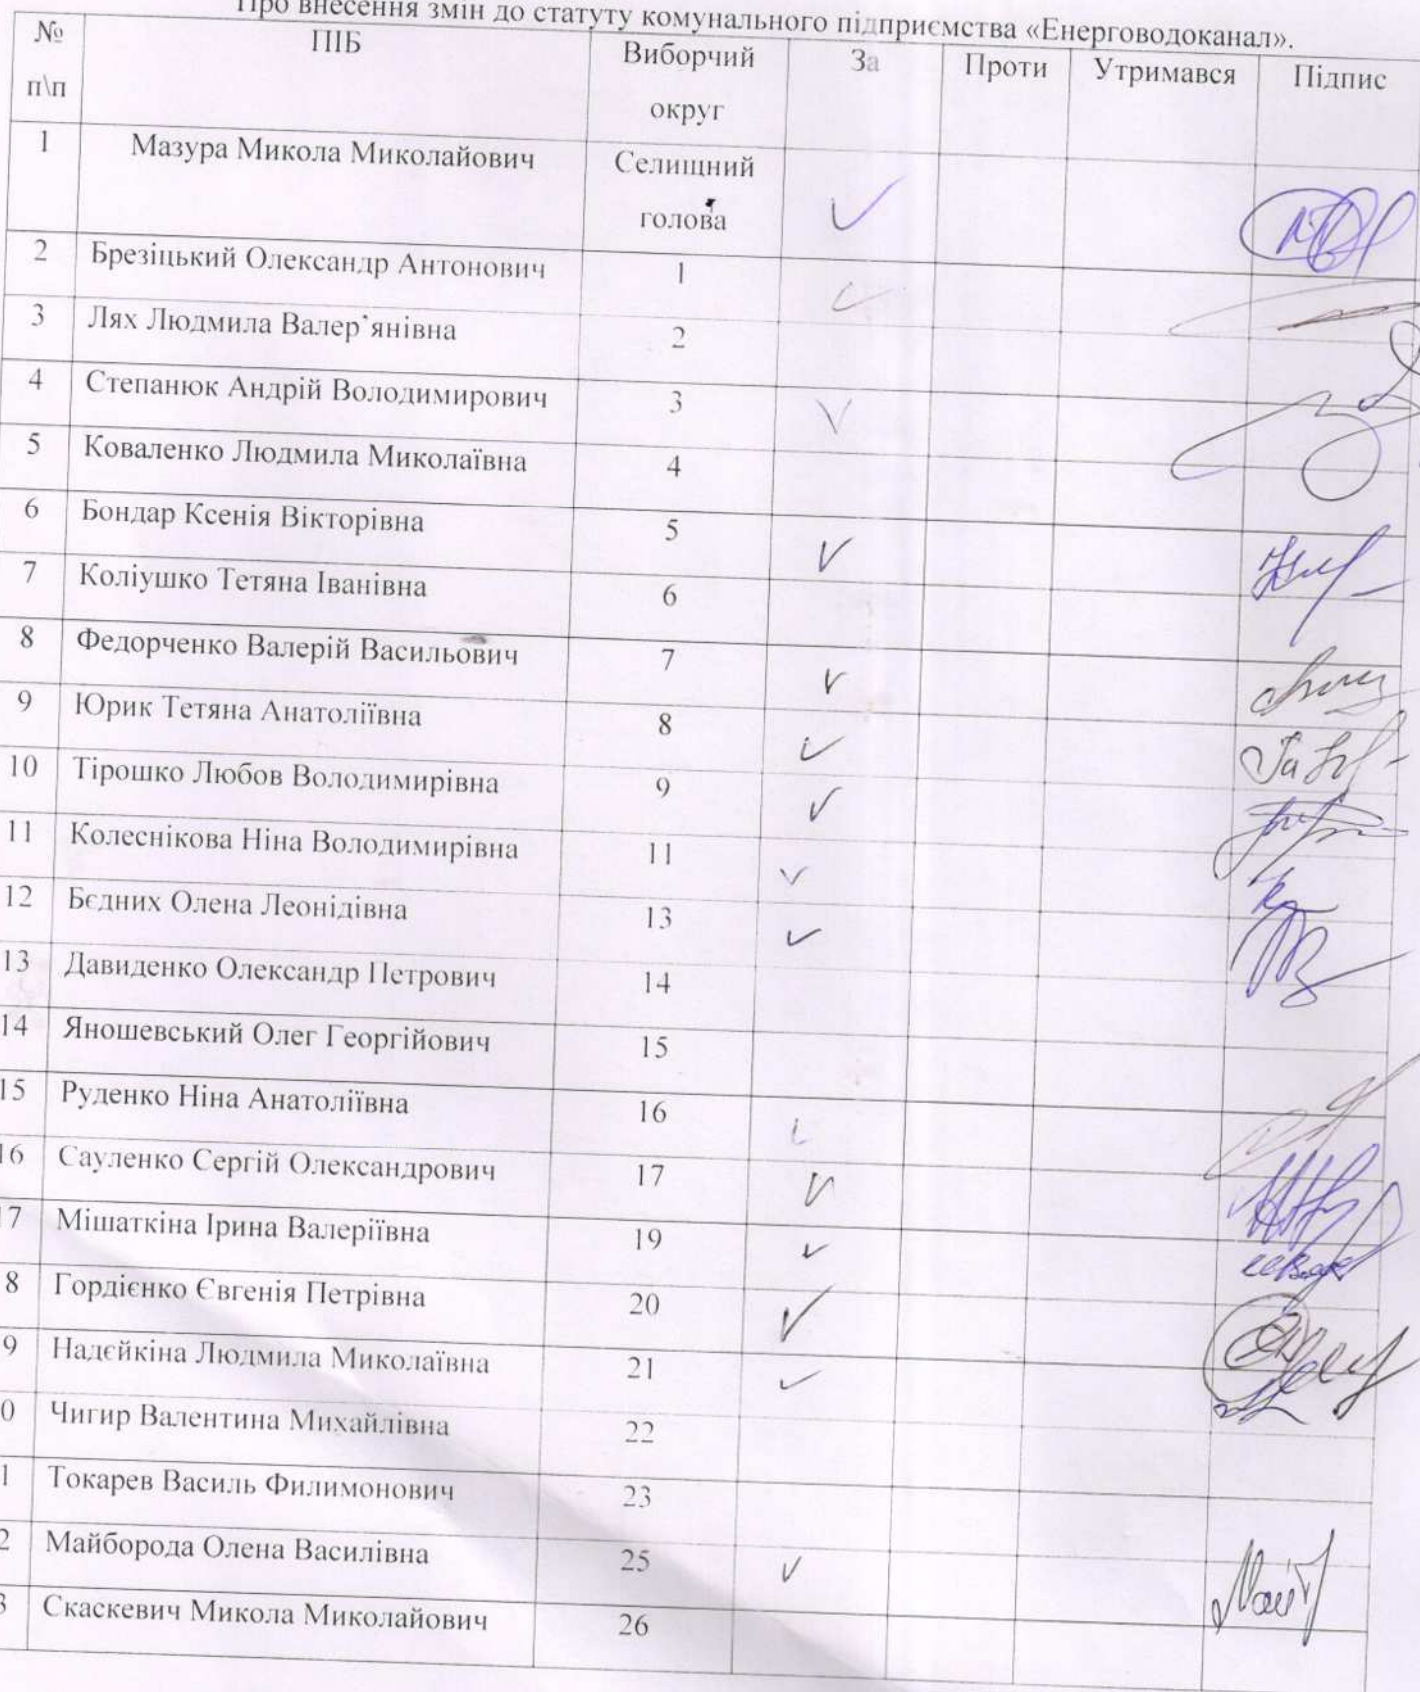 Про внесення змін до статуту комунального підприємства «Енерговодоканал».
№ п\п ПІБ Виборчий округ За Проти Утримався Підпис
1 Мазура Микола Миколайович Селищний голова
2 Брезіцький Олександр Антонович 1
3 Лях Людмила Валер`янівна 2
4 Степанюк Андрій Володимирович 3
5 Коваленко Людмила Миколаївна 4
6 Бондар Ксенія Вікторівна 5
7 Коліушко Тетяна Іванівна 6
8 Федорченко Валерій Васильович 7
9 Юрик Тетяна Анатоліївна 8
10 Тірошко Любов Володимирівна 9
11 Колеснікова Ніна Володимирівна 11
12 Бєдних Олена Леонідівна 13
13 Давиденко Олександр Петрович 14
14 Яношевський Олег Георгійович 15
15 Руденко Ніна Анатоліївна 16
16 Сауленко Сергій Олександрович 17
7 Мішаткіна Ірина Валеріївна 19
8 Гордієнко Євгенія Петрівна 20
9 Надєйкіна Людмила Миколаївна 21
0 Чигир Валентина Михайлівна 22
1 Токарев Василь Филимонович 23
2 Майборода Олена Василівна 25
3 Скаскевич Микола Миколайович 26